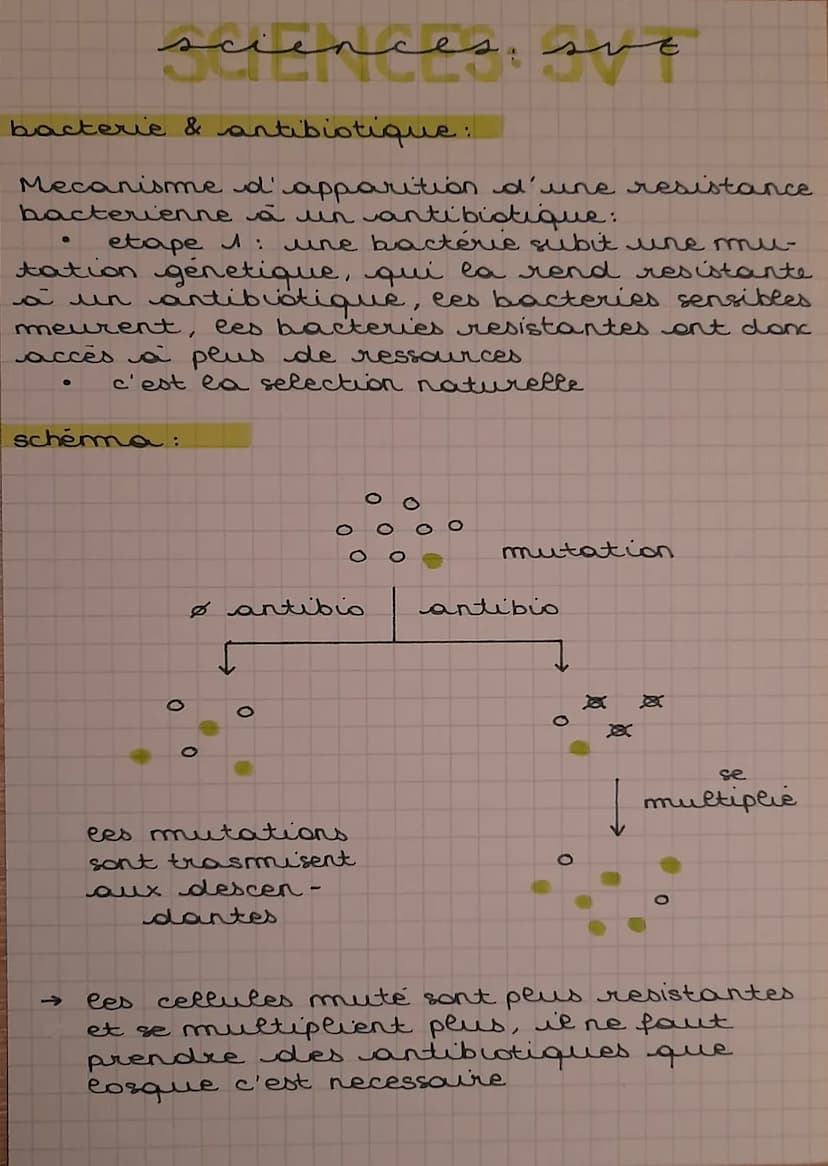 sciences: svt
SCIENCES: SVT
bacterie & antibiotique:
Mecanisme d'apparition d'une resistance
bacterienne à un antibiotique:
• etape 1 : une bactérie subit une mu-
tation génetique, qui la rend resistante
à un antibiotique, les bacteries sensibles
meurent, les bacteries resistantes ont donc
accès à plus de ressources
• c'est la selection naturelle
schéma :
mutation
ø antibio antibio
se
multiplié
les mutations
sont trasmisent
aux descen-
dantes
→ les cellules muté sont plus resistantes
et se multiplient plus, il ne faut
prendre des antibiotiques que
losque c'est necessaire